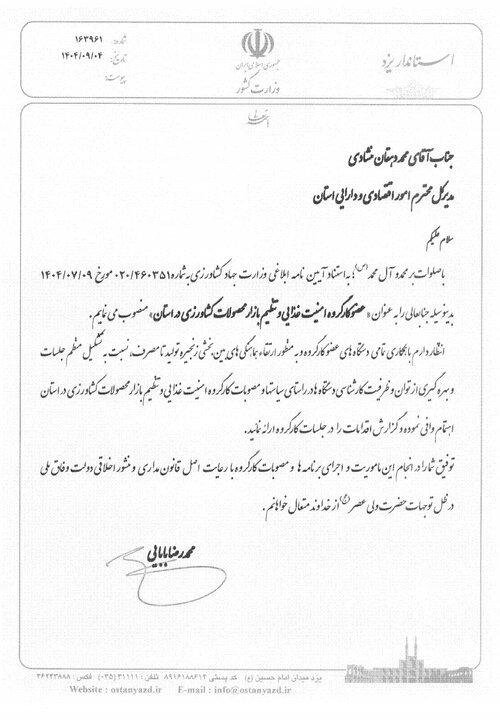 استاندار یزد
جمهوری اسلامی ایران
وزارت کشور
شماره: ۱۶۳۹۶۱
تاریخ: ۱۴۰۴/۰۹/۰۴
پیوست:
بسمه تعالی
جناب آقای محمد دهقان منشادی
مدیرکل محترم امور اقتصادی و دارایی استان
سلام علیکم
با صلوات بر محمد و آل محمد (ص)؛ به استناد آیین نامه ابلاغی وزارت جهاد کشاورزی به شماره ۰۲۰/۴۶۰۳۵۱ مورخ ۱۴۰۴/۰۷/۰۹
بدینوسیله جنابعالی را به عنوان «عضو کارگروه امنیت غذایی و تنظیم بازار محصولات کشاورزی در استان» منصوب می نمایم.
انتظار دارم با همکاری تمامی دستگاه های عضو کارگروه و به منظور ارتقاء هماهنگی های بین بخشی زنجیره تولید تا مصرف، نسبت به تشکیل منظم جلسات
و بهره گیری از توان و ظرفیت کارشناسی دستگاه ها در راستای سیاستها و مصوبات کارگروه امنیت غذایی و تنظیم بازار محصولات کشاورزی در استان
اهتمام وافی نموده و گزارش اقدامات را در جلسات کارگروه ارائه نمائید.
توفیق شما را در انجام این ماموریت و اجرای برنامه ها و مصوبات کارگروه با رعایت اصل قانون مداری و منشور اخلاقی دولت وفاق ملی
در ظل توجهات حضرت ولی عصر (عج) از خداوند متعال خواهانم.
محمدرضا بابایی
یزد میدان امام حسین (ع) کد پستی ۸۹۱۶۱۸۸۶۱۳ تلفن: ۳۱۱۱۱ (۰۳۵) فکس: ۳۶۲۴۳۸۸۸
Website : ostanyazd.ir E-mail : info@ostanyazd.ir